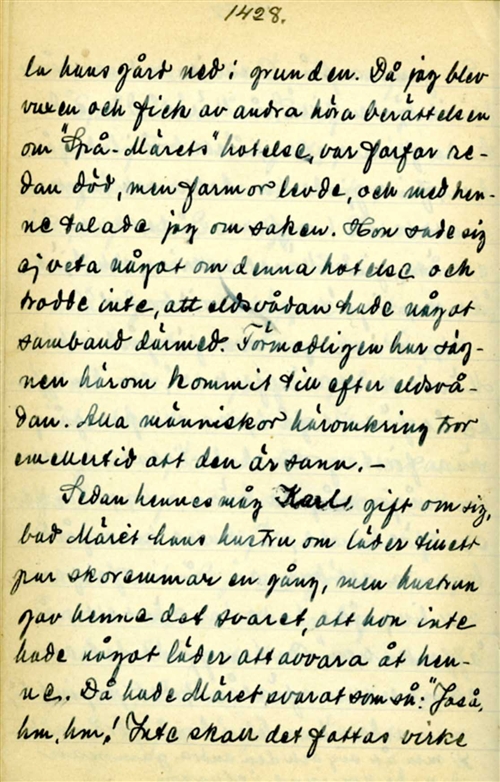 1428.
la hans gård ned i grunden. Då jag blev
vuxen och fick av andra höra berättelsen
om "Spå-Märets" hotelse, var farfar re-
dan död, men farmor levde, och med hen-
ne talade jag om saken. Hon sade sig
ej veta något om denna hotelse och
trodde inte, att eldsvådan hade något
samband därmed. Förmodligen har säg-
nen härom kommit till efter eldsvå-
dan. Alla människor häromkring tror
emellertid att den är sann. –
Sedan hennes måg Karl gift om sig,
bad Märet hans hustru om läder till ett
par skoremmar en gång, men hustrun
gav henne det svaret, att hon inte
hade något läder att avvara åt hen-
ne. Då hade Märet svarat som så: "Jaså,
hm, hm! Inte skall det fattas virke